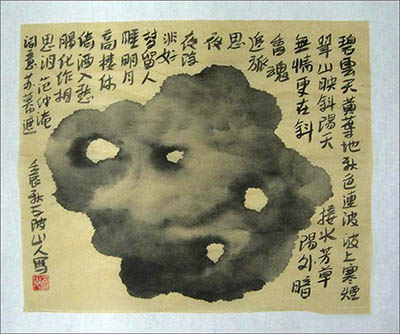 碧雲天黃葉地秋色連波波上寒煙
翠山映斜陽天接水芳草
無情更在斜陽外暗
香魂
追旅
思
夜
夜除
非好
夢留人
睡明月
高樓休
倚酒入愁
腸化作相
思泪范仲淹
词意苏幕遮
壬辰秋山人写